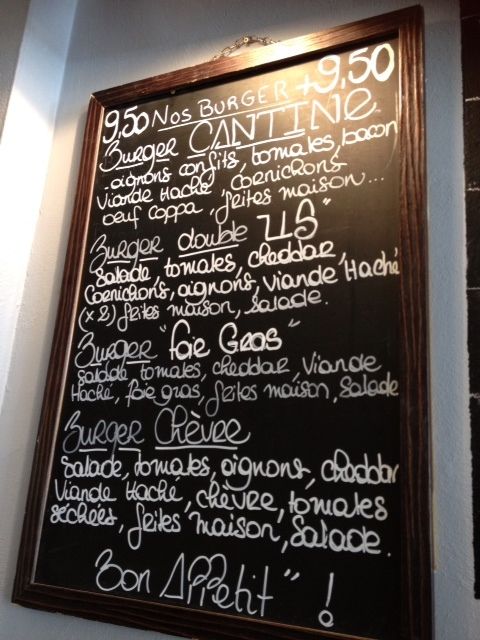 9,50 NOS BURGER 9,50
Burger CANTINE
oignons confits, tomates, bacon
Viande Haché, Cornichons
oeuf coppa, frites maison...
Burger double "US"
Salade tomates, cheddar,
Cornichons, oignons, viande Haché
(x 2) frites maison, Salade.
Burger "foie Gras"
Salade tomates, cheddar, Viande
Haché, foie gras, frites maison, Salade
Burger Chèvre
Salade, tomates, oignons, cheddar
Viande Haché, chèvre, tomates
séchées, frites maison, Salade.
Bon APPetit" !